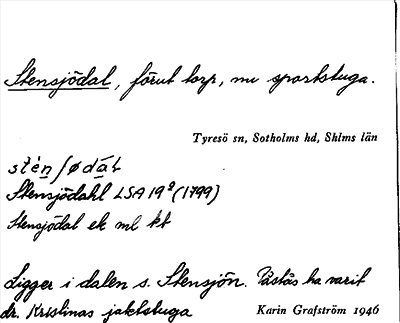 Stensjödal, förut torp, nu sportstuga.
Tyresö sn, Sotholms hd, Shlms län
sténʃødál
Stensjödahl LSA 19⁸ (1799)
Stensjödal ek ml kt
Ligger i dalen s. Stensjön. Påstås ha varit
dr. Kristinas jaktstuga
Karin Grafström 1946